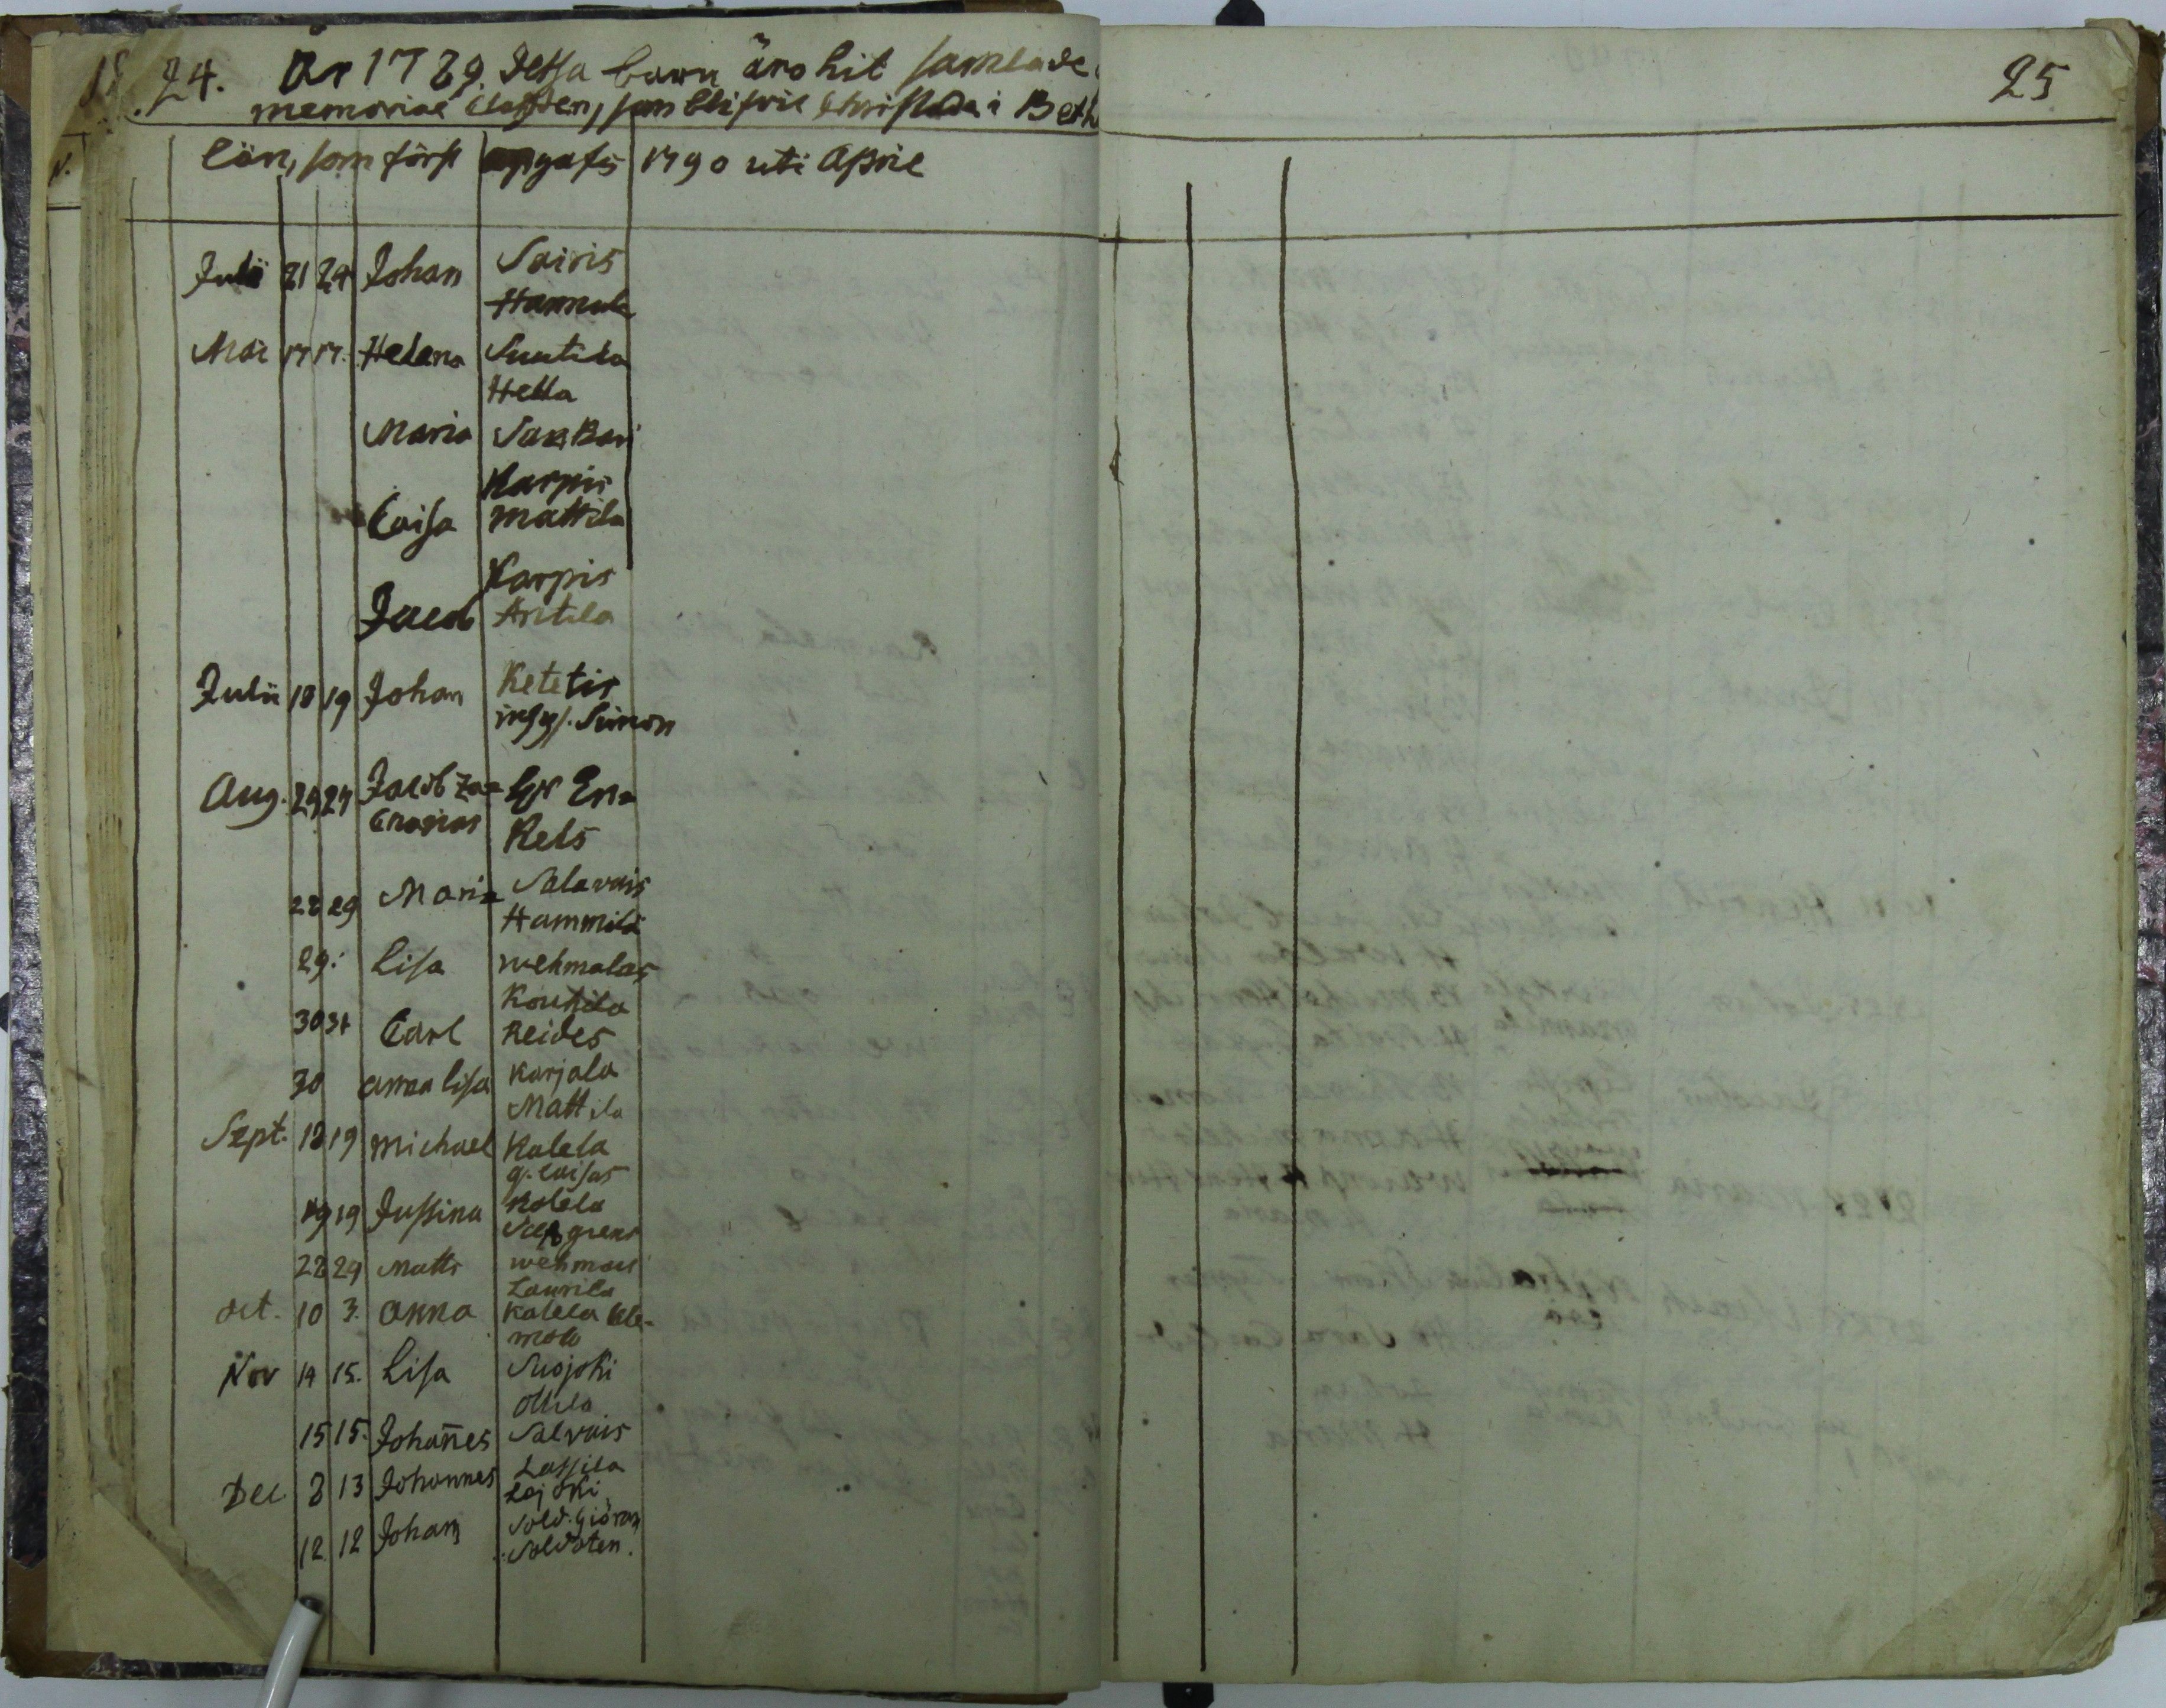 24. År 1789. Dessa barn äro hit samlade
memorial som blifvit Christnade i Beth
län, som först opgafs 1790 uti April
Julii 21 24 Johan Sairis
Hannula
Mai 17 17. Helena Suutila
Hella
Maria Sakkari
Karpis
Caisa Mattila
Karpis
Jacob Antila
Julii 18 19 Johan Ketetis
Simon
Aug. 24 24 Jacob Za=
Kels
28 29 Maria Salavais
Hammila
29. Lisa wehmalais
Kouhila
30 31 Carl Reides
30 anna lisa Karjala
Mattila
Sept. 18 19 Michael Kalela
g. Caisas
19 19 Jussina Kalela
22 24 Matts wehmais
Laurila
Oct. 10 3. anna Kalela Kle-
mola
Nov 14 15. Lisa Suojoki
Ollila
15 15. Johannes Salvais
Lassila
Dec 8 13 Johannes Lejoki
Sold. Giöran
12 12 Johan Soldaten.
25